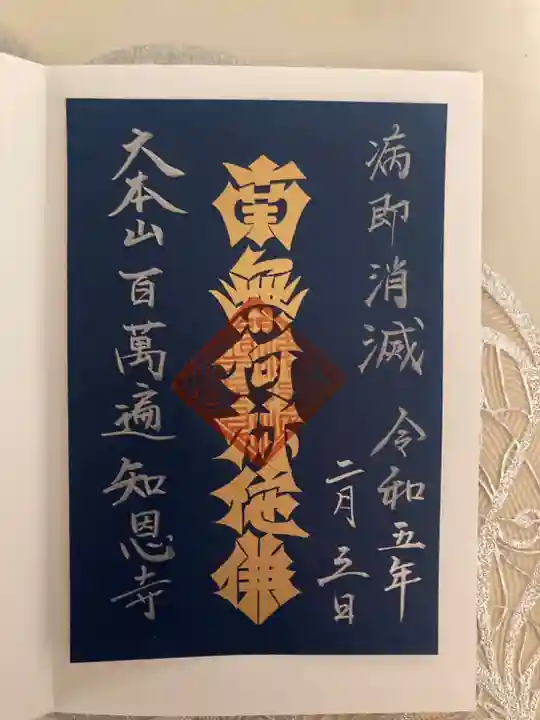 病即消滅 令和五年
二月五日
南無阿弥陀佛
大本山百萬遍知恩寺